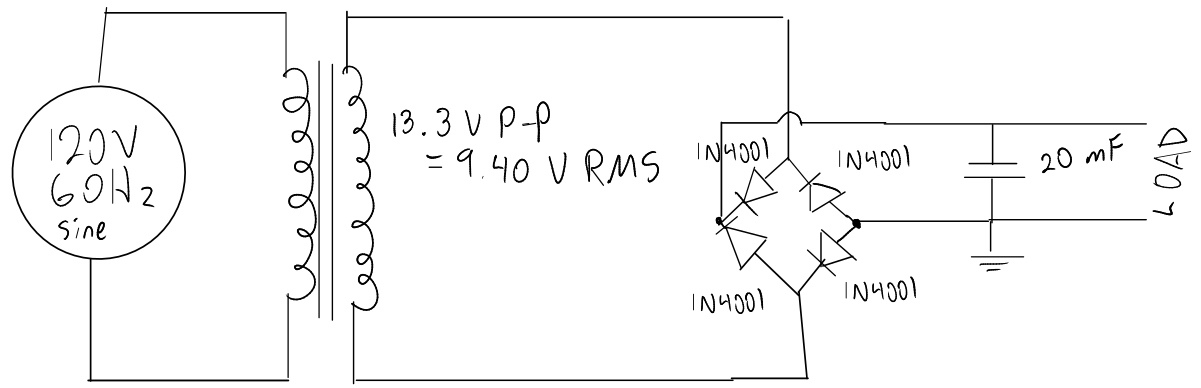 120V
60Hz
sine
13.3 V P-P
= 9.40 V RMS
1N4001
1N4001
1N4001
1N4001
20 mF
LOAD